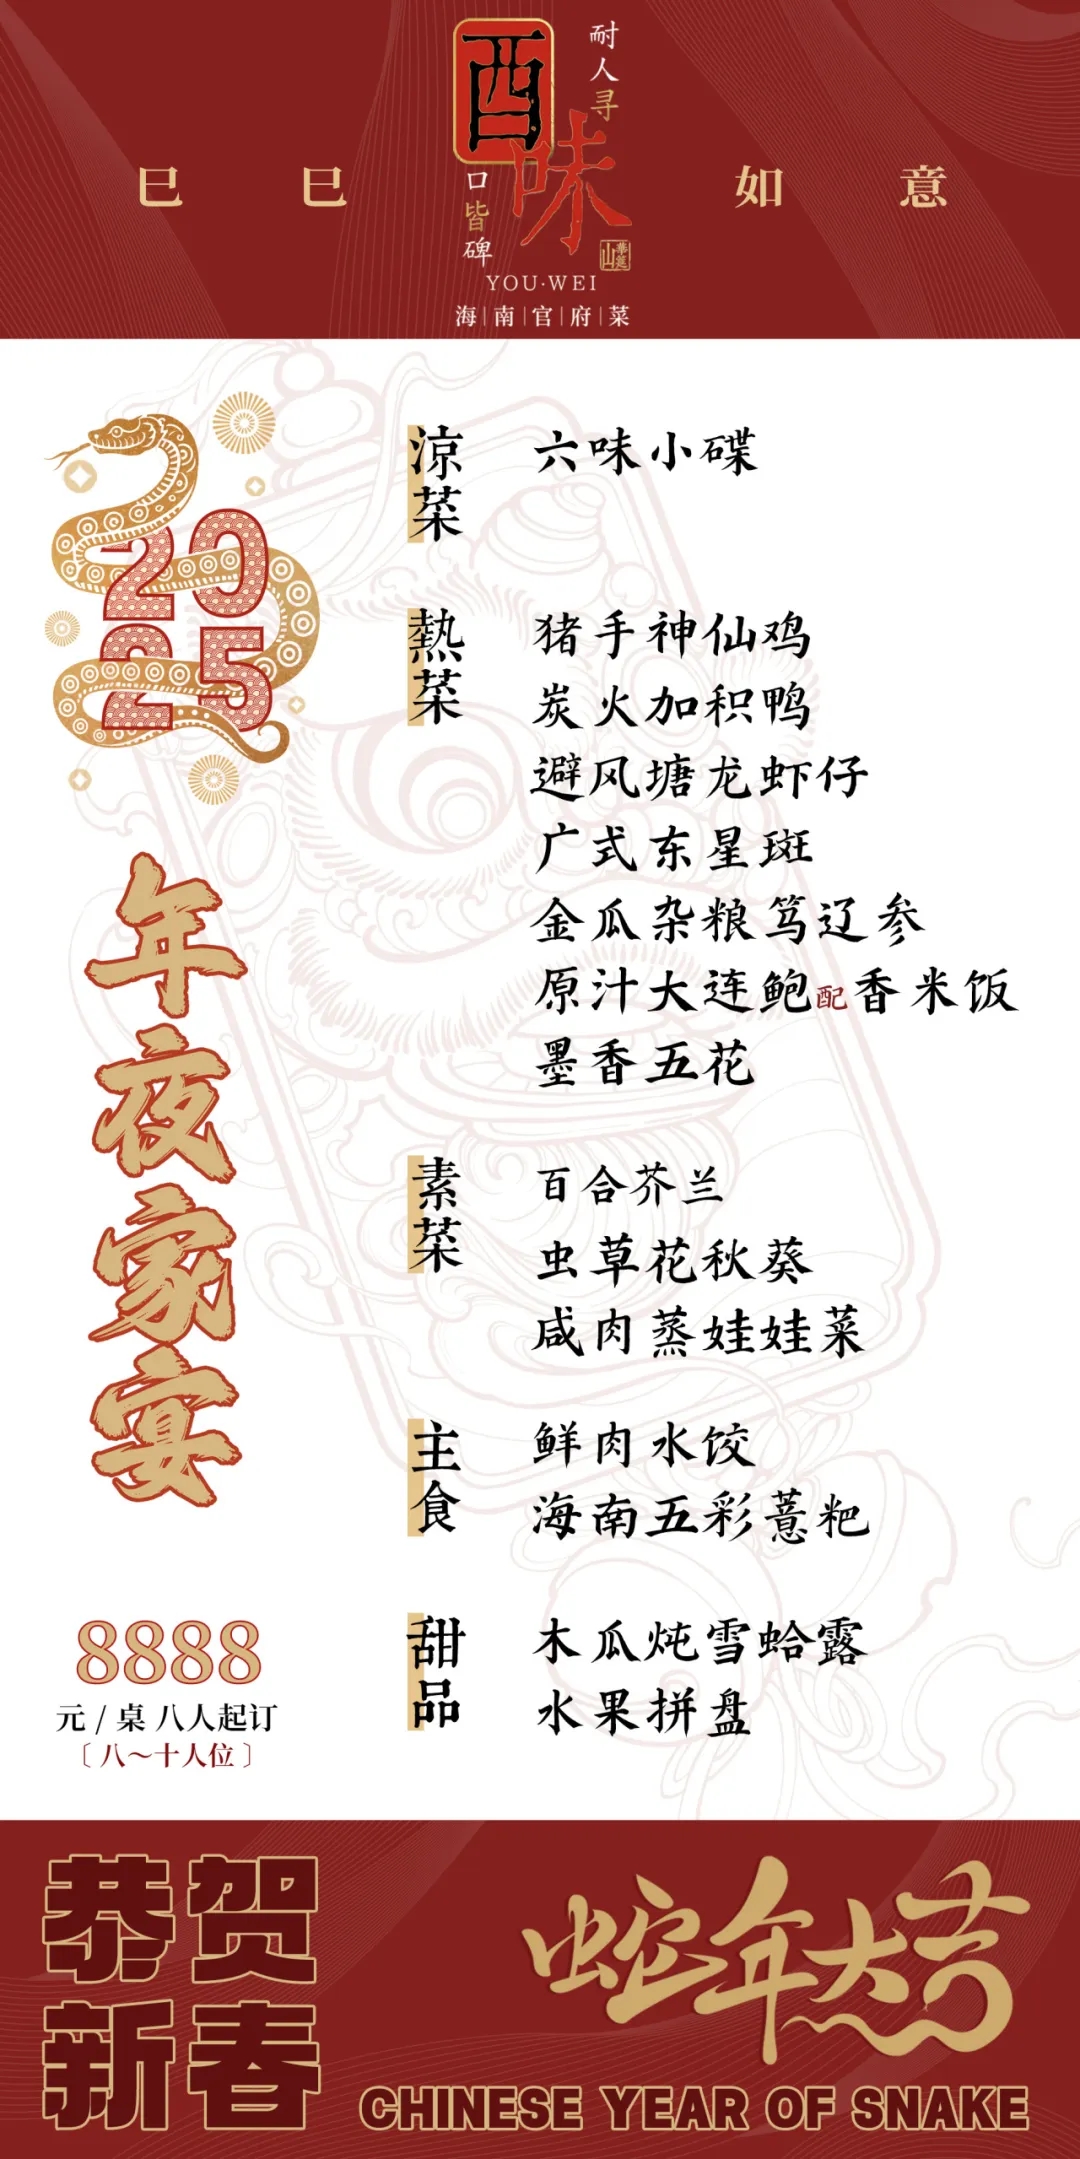 耐人寻
酉味
口皆碑
華莚山
YOU·WEI
海|南|官|府|菜
巳巳如意
2025
年夜家宴
8888
元/桌 八人起订
〔八～十人位〕
涼菜
六味小碟
熱菜
猪手神仙鸡
炭火加积鸭
避风塘龙虾仔
广式东星斑
金瓜杂粮笃辽参
原汁大连鲍配香米饭
墨香五花
素菜
百合芥兰
虫草花秋葵
咸肉蒸娃娃菜
主食
鲜肉水饺
海南五彩薏粑
甜品
木瓜炖雪蛤露
水果拼盘
恭贺
新春
蛇年大吉
CHINESE YEAR OF SNAKE